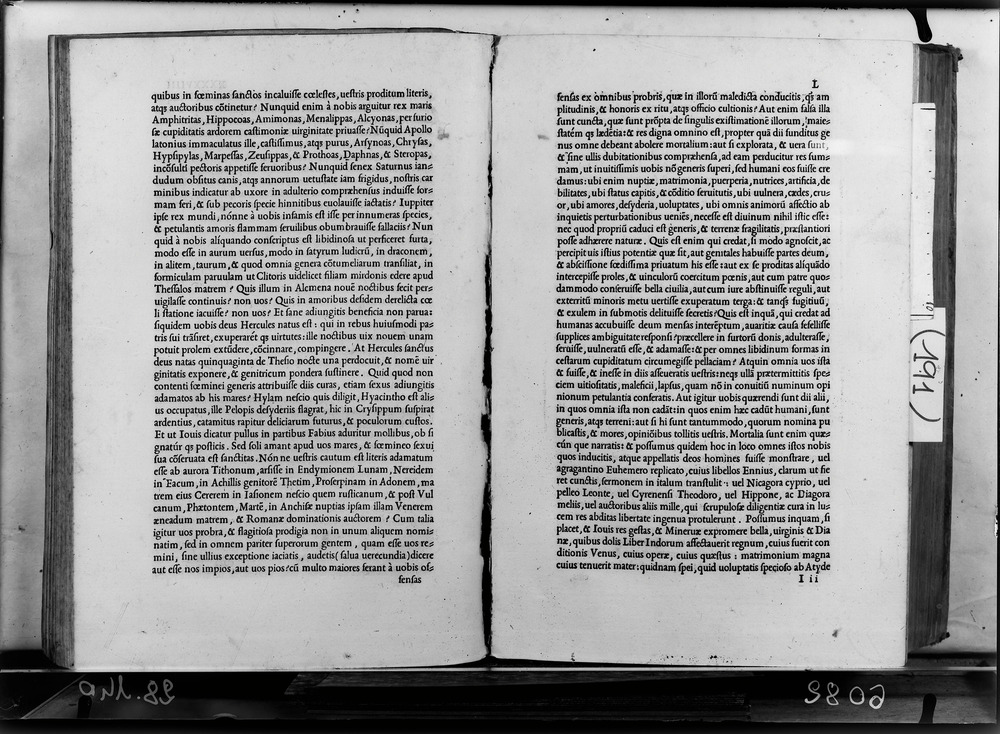 quibus in fœminas sanctos incaluisse cœlestes, uestris proditum literis,
atqꝫ auctoribus cōtinetur? Nunquid enim à nobis arguitur rex maris
Amphitritas, Hippocoas, Amimonas, Menalippas, Alcyonas, per furio
sæ cupiditatis ardorem castimoniæ uirginitate priuasse? Nūquid Apollo
latonius immaculatus ille, castissimus, atqꝫ purus, Arsynoas, Chrysas,
Hypsipylas, Marpessas, Zeusippas, & Prothoas, Daphnas, & Steropas,
incōsulti pectoris appetisse feruoribus? Nunquid senex Saturnus ian⸗
dudum obsitus canis, atqꝫ annorum uetustate iam frigidus, nostris car
minibus indicatur ab uxore in adulterio compræhensus induisse for⸗
mam feri, & sub pecoris specie hinnitibus euolauisse iactatis? Iuppiter
ipse rex mundi, nónne à uobis infamis est isse per innumeras species,
& petulantis amoris flammam seruilibus obumbrauisse fallaciis? Nun
quid à nobis alíquando conscriptus est libidinosa ut perficeret furta,
modo esse in aurum uersus, modo in satyrum ludicrū, in draconem,
in alitem, taurum, & quod omnia genera cōtumeliarum transiliat, in
formiculam paruulam ut Clitoris uidelicet filiam mirdonis edere apud
Thessalos matrem? Quis illum in Alcmena nouē noctibus fecit per⸗
uigilasse continuis? non uos? Quis in amoribus desidem derelicta cœ
li statione iacuisse? non uos? Et sane adiungitis beneficia non parua:
siquidem uobis deus Hercules natus est: qui in rebus huiusmodi pa⸗
tris sui trāsiret, exuperarét qꝫ uirtutes: ille noctibus uix nouem unam
potuit prolem extūdere, cōcinnare, compingere. At Hercules sanctus
deus natas quinquaginta de Thesio nocte una perdocuit, & nomē uir
ginitatis exponere, & genitricum pondera sustinere. Quid quod non
contenti fœminei generis attribuisse diis curas, etiam sexus adiungitis
adamatos ab his mares? Hylam nescio quis diligit, Hyacintho est ali⸗
us occupatus, ille Pelopis desyderiis flagrat, hic in Crysippum suspirat
ardentius, catamitus rapitur deliciarum futurus, & poculorum custos.
Et ut Iouis dicatur pullus in partibus Fabius aduritur mollibus, ob si
gnatúr qꝫ posticis. Sed soli amant apud uos mares, & fœmineo sexui
sua cōseruata est sanctitas. Nón ne uestris cautum est literis adamatum
esse ab aurora Tithonum, arsisse in Endymionem Lunam, Nereidem
in Eacum, in Achillis genitorē Thetim, Proserpinam in Adonem, ma
trem eius Cererem in Iasionem nescio quem rusticanum, & post Vul
canum, Phætontem, Martē, in Anchisæ nuptias ipsam illam Venerem
æneadum matrem, & Romanæ dominationis auctorem? Cum talia
igitur uos probra, & flagitiosa prodigia non in unum aliquem nomi⸗
natim, sed in omnem pariter superorum gentem, quam esse uos re⸗
mini, sine ullius exceptione iaciatis, audetis (salua uerecundia) dicere
aut esse nos impios, aut uos pios? cū multo maiores ferant à uobis of⸗
sensas
L
sensas ex omnibus probris, quæ in illorū maledicta conducitis, qꝫ am
plitudinis, & honoris ex ritu, atqꝫ officio cultionis? Aut enim falsa illa
sunt cuncta, quæ sunt prōpta de singulis existimationē illorum, maie⸗
statém qꝫ lædētia: & res digna omnino est, propter quā dii funditus ge
nus omne debeant abolere mortalium: aut si explorata, & uera sunt,
& sine ullis dubitationibus compræhensa, ad eam perducitur res sum⸗
mam, ut inuitissimis uobis nō generis superi, sed humani eos fuisse cre
damus: ubi enim nuptiæ, matrimonia, puerperia, nutrices, artificia, de
bilitates, ubi status capitis, & cōditio seruitutis, ubi uulnera, cædes, cru⸗
or, ubi amores, desyderia, uoluptates, ubi omnis animorū affectio ab
inquietis perturbationibus ueniēs, necesse est diuinum nihil istic esse:
nec quod propriū caduci est generis, & terrenæ fragilitatis, præstantiori
posse adhærere naturæ. Quis est enim qui credat, si modo agnoscit, ac
percipit uis istius potentiæ quæ sit, aut genitales habuisse partes deum,
& abscissione fœdissima priuatum his esse: aut ex se proditas alíquādo
intercepisse proles, & uinculorū coercitum pœnis, aut cum patre quo⸗
dammodo conseruisse bella ciuilia, aut cum iure abstinuisse reguli, aut
exterritū minoris metu uertisse exuperatum terga: & tanqꝫ fugitiuū,
& exulem in submotis delituisse secretis? Quis est inquā, qui credat ad
humanas accubuisse deum mensas interēptum, auaritiæ causa fefellisse
supplices ambiguitate responsi? præcellere in furtorū donis, adulterasse,
seruisse, uulneratū esse, & adamasse: & per omnes libidinum formas in
cestarum cupiditatum circumegisse pellaciam? Atquin omnia uos ista
& fuisse, & inesse in diis asseueratis uestris: neqꝫ ullā prætermittitis spe⸗
ciem uitiositatis, maleficii, lapsus, quam nō in conuitiū numinum opi
nionum petulantia conferatis. Aut igitur uobis quærendi sunt dii alii,
in quos omnia ista non cadāt: in quos enim hæc cadūt humani, sunt
generis, atqꝫ terreni: aut si hi sunt tantummodo, quorum nomina pu
blicastis, & mores, opinioībus tollitis uestris. Mortalia sunt enim quæ⸗
cūn que narratis: & possumus quidem hoc in loco omnes istos nobis
quos inducitis, atque appellatis deos homines fuisse monstrare, uel
agragantino Euhemero replicato, cuius libellos Ennius, clarum ut fie
ret cunctis, sermonem in italum transtulit: uel Nicagora cyprio, uel
pelleo Leonte, uel Cyrenensi Theodoro, uel Hippone, ac Diagora
meliis, uel auctoribus aliis mille, qui scrupulosæ diligentiæ cura in lu⸗
cem res abditas libertate ingenua protulerunt. Possumus inquam, si
placet, & Iouis res gestas, & Mineruæ expromere bella, uirginis & Dia
næ, quibus dolis Liber Indorum affectauerit regnum, cuius fuerit con
ditionis Venus, cuius operæ, cuius quæstus: matrimonium magna
cuius tenuerit mater: quidnam spei, quid uoluptatis specioso ab Atyde
I ii
101
(191)
28.140
6088